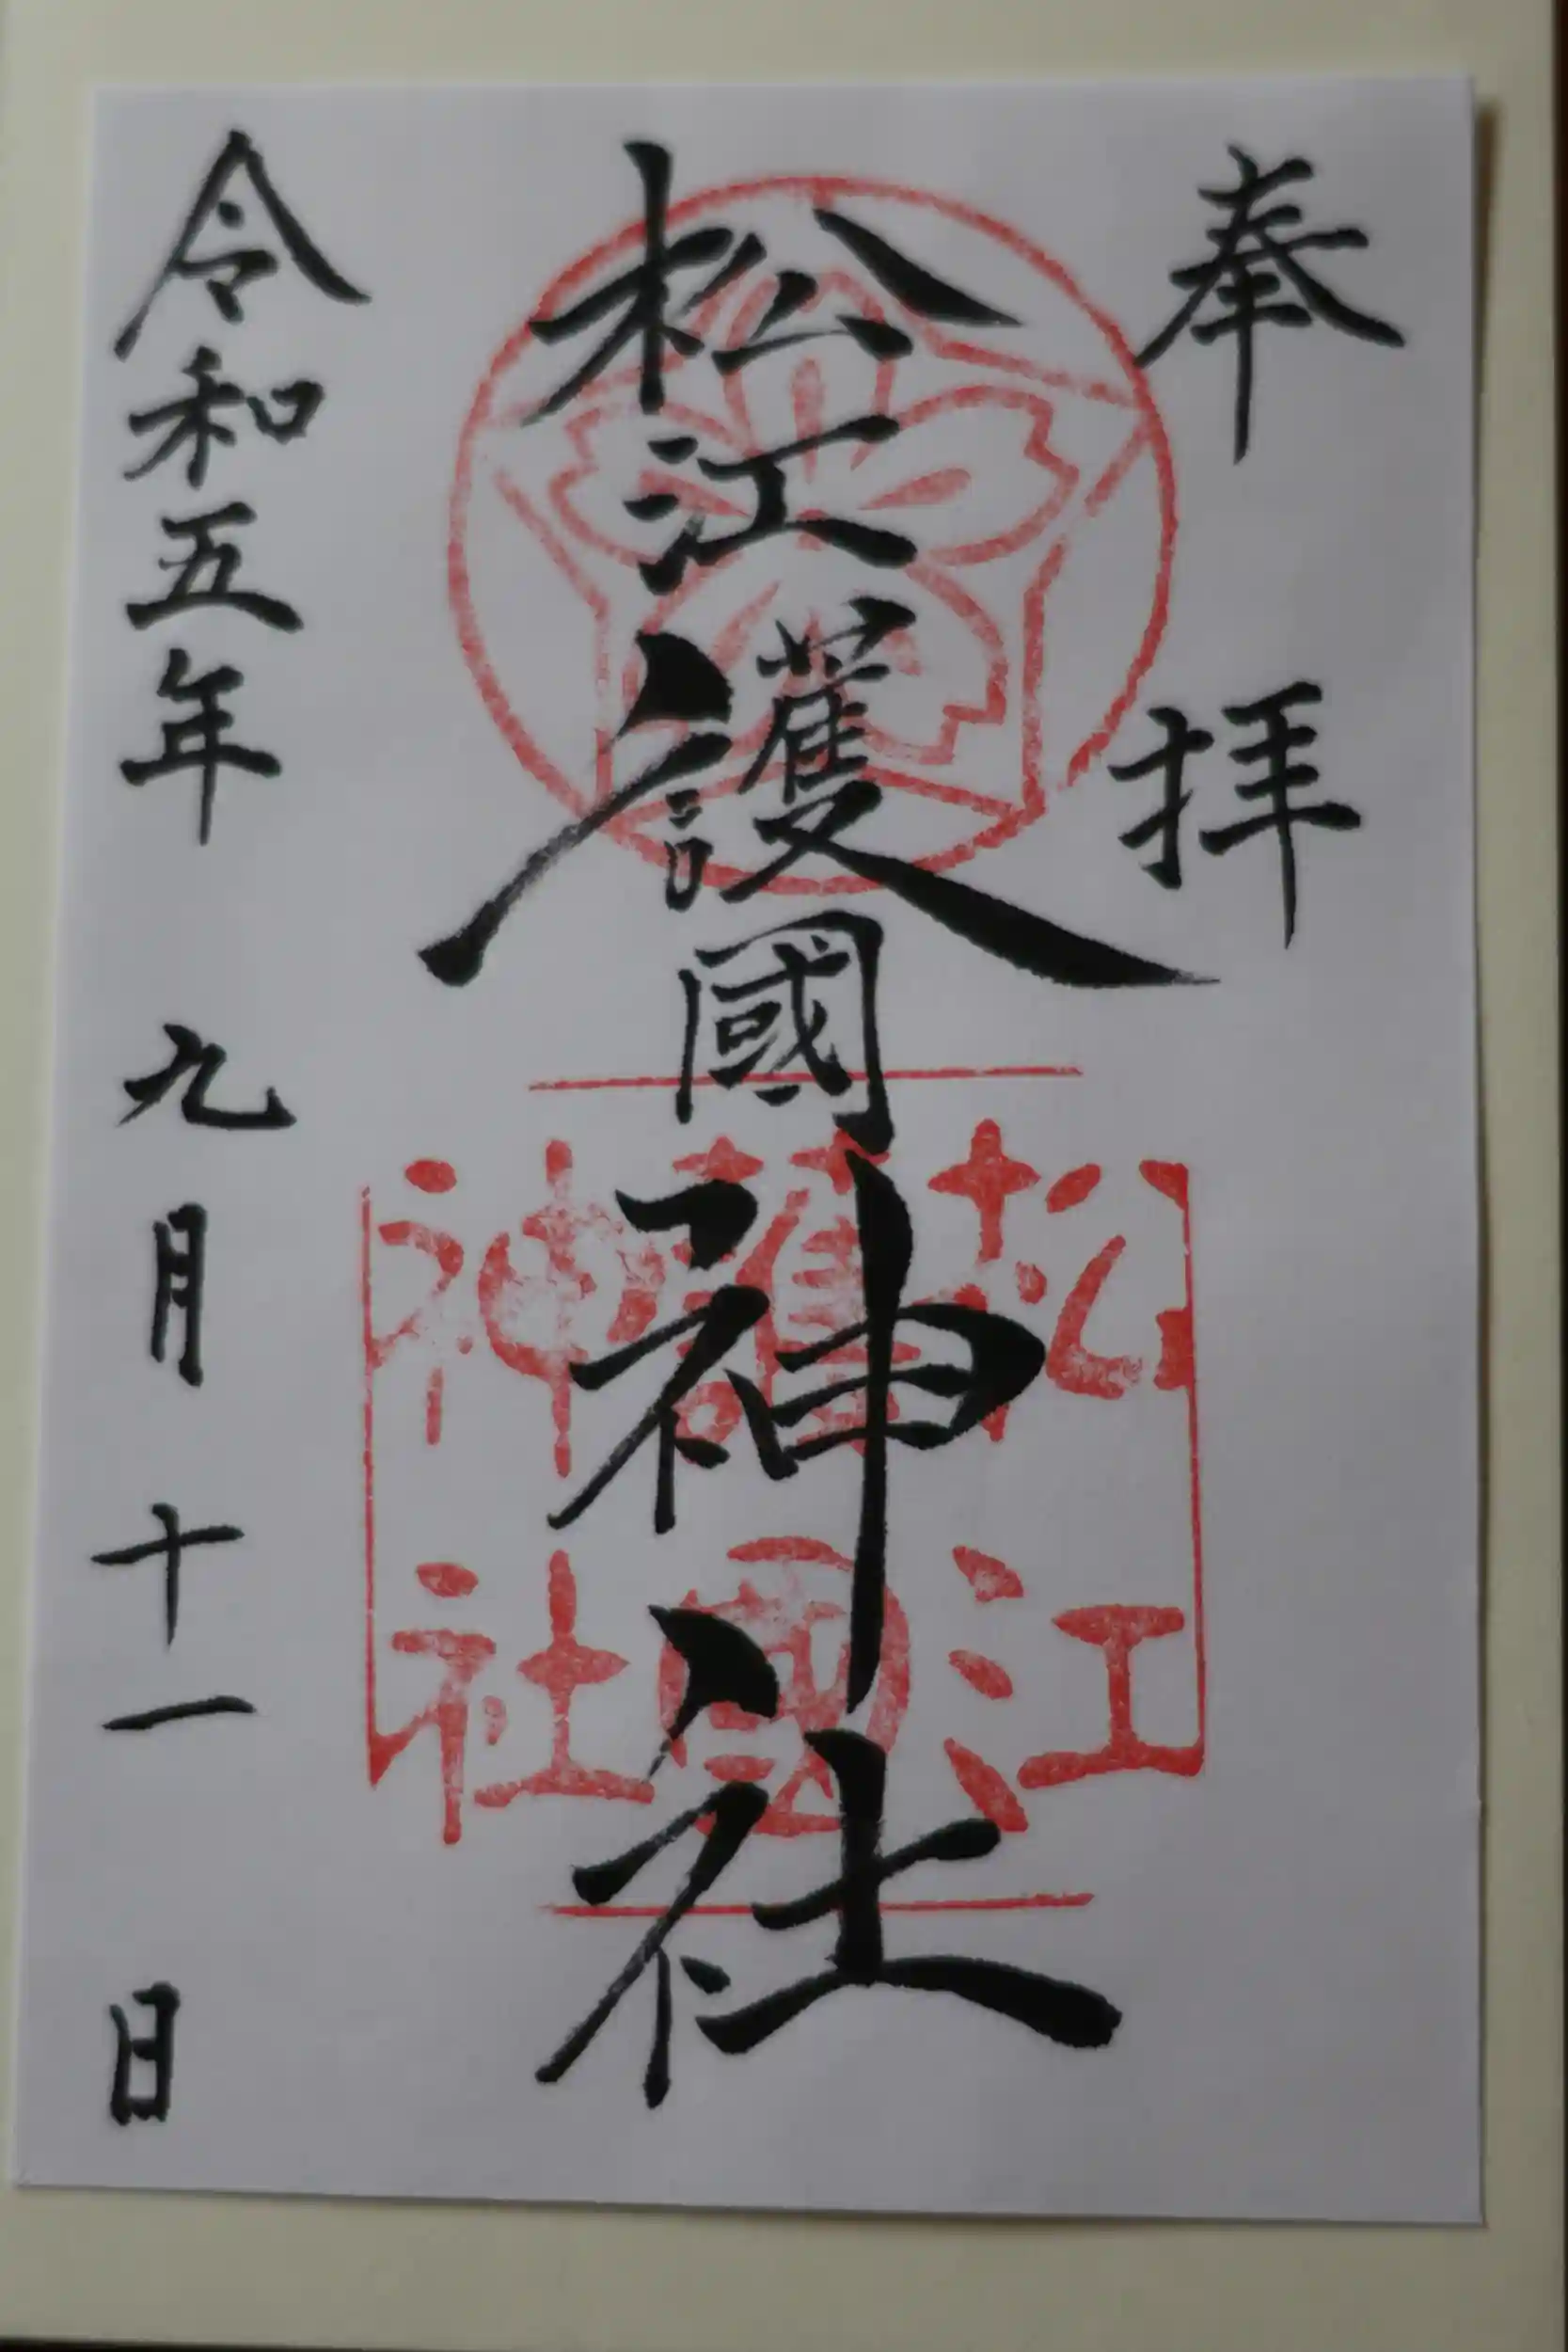 奉拝
松江護國神社
松江
護國
神社
令和五年 九月十一日